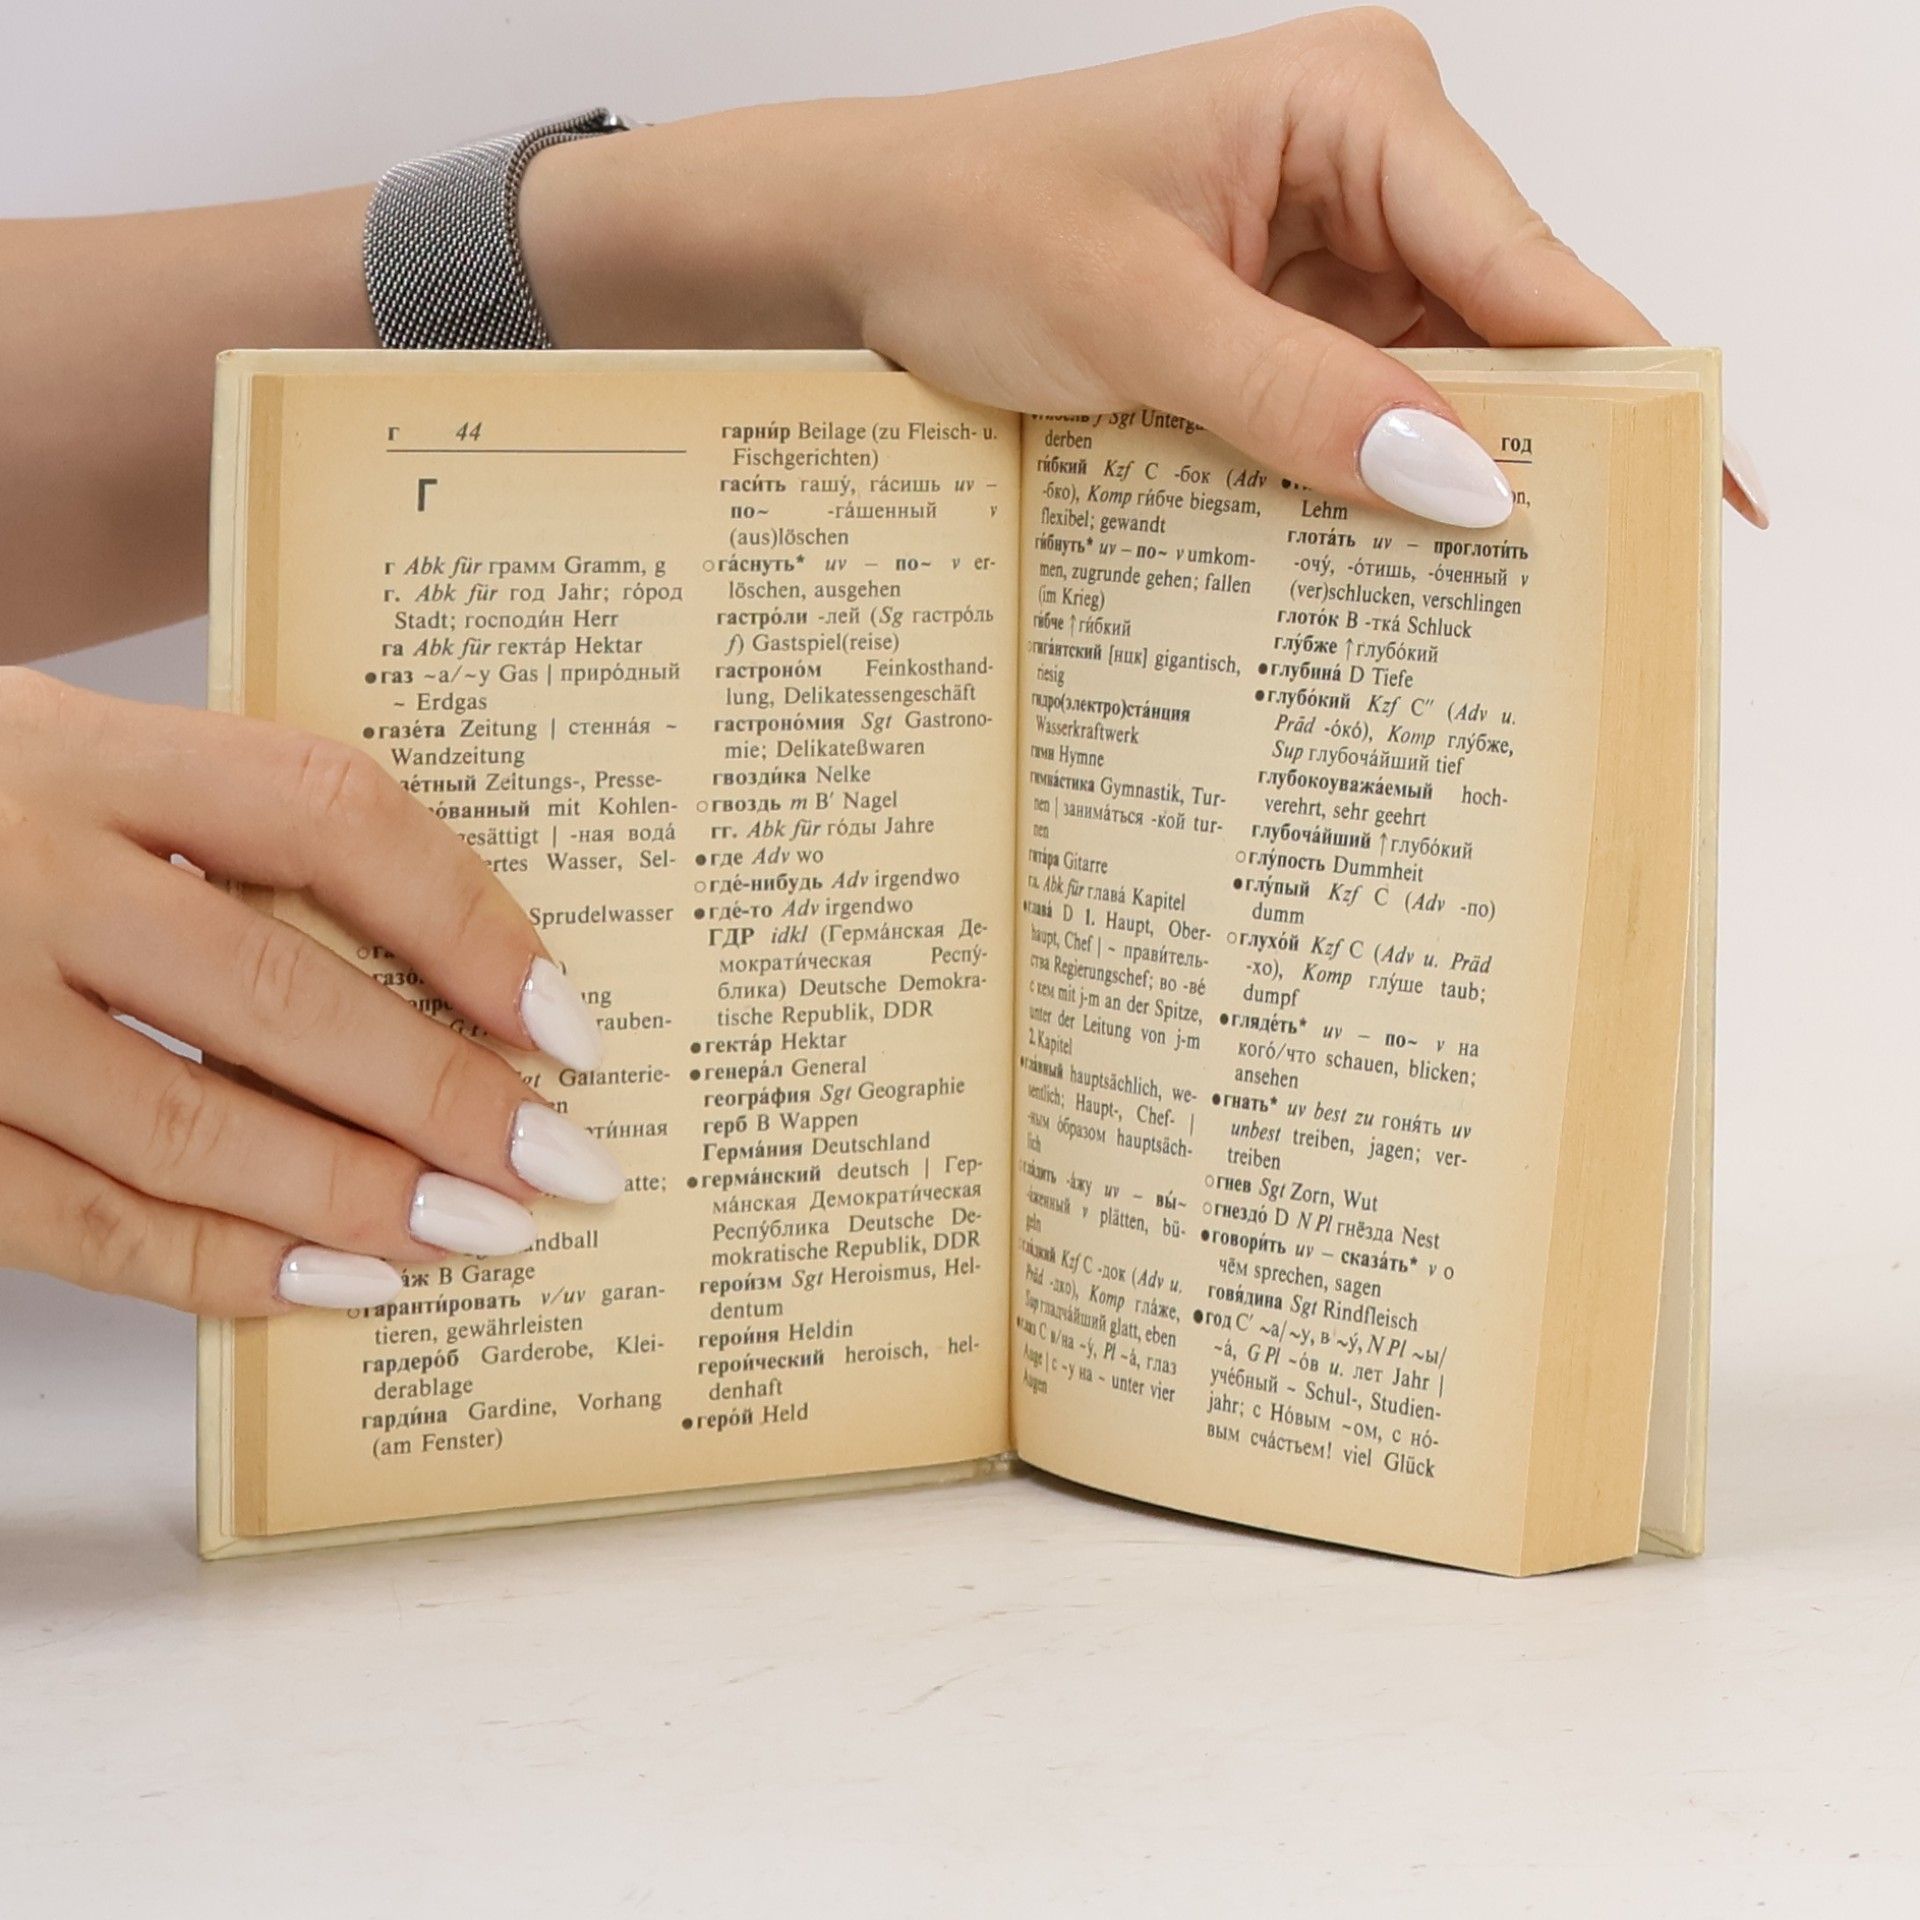 г 44
Г
г Abk für грамм Gramm, g
г. Abk für год Jahr; го́род
Stadt; господи́н Herr
га Abk für гекта́р Hektar
●газ ~а/~у Gas | приро́дный
~ Erdgas
●газе́та Zeitung | стенна́я ~
Wandzeitung
Zeitungs-, Presse-
mit Kohlen-
gesättigt | -ная вода́
Wasser, Sel-
Sprudelwasser
Sgt Galanterie-
B Garage
○гаранти́ровать v/uv garan-
tieren, gewährleisten
гардеро́б Garderobe, Klei-
derablage
гарди́на Gardine, Vorhang
(am Fenster)
гарни́р Beilage (zu Fleisch- u.
Fischgerichten)
гаси́ть гашу́, га́сишь uv –
по~ -га́шенный v
(aus)löschen
○га́снуть* uv – по~ v er-
löschen, ausgehen
гастро́ли -лей (Sg гастро́ль
f) Gastspiel(reise)
гастроно́м Feinkosthand-
lung, Delikatessengeschäft
гастроно́мия Sgt Gastrono-
mie; Delikateßwaren
гвозди́ка Nelke
○гвоздь m B′ Nagel
гг. Abk für го́ды Jahre
●где Adv wo
○где́-нибудь Adv irgendwo
●где́-то Adv irgendwo
ГДР idkl (Герма́нская Де-
мократи́ческая Респу́-
блика) Deutsche Demokra-
tische Republik, DDR
●гекта́р Hektar
●генера́л General
геогра́фия Sgt Geographie
герб B Wappen
Герма́ния Deutschland
●герма́нский deutsch | Гер-
ма́нская Демократи́ческая
Респу́блика Deutsche De-
mokratische Republik, DDR
герои́зм Sgt Heroismus, Hel-
dentum
герои́ня Heldin
герои́ческий heroisch, hel-
denhaft
●геро́й Held
f Sgt
derben
ги́бкий Kzf C -бок (Adv
-бко), Komp ги́бче biegsam,
flexibel; gewandt
ги́бнуть* uv – по~ v umkom-
men, zugrunde gehen; fallen
(im Krieg)
ги́бче ↑ги́бкий
○гига́нтский [нцк] gigantisch,
riesig
гидро(электро)ста́нция
Wasserkraftwerk
гимн Hymne
гимна́стика Gymnastik, Tur-
nen | занима́ться -кой tur-
nen
гита́ра Gitarre
гл. Abk für глава́ Kapitel
●глава́ D 1. Haupt, Ober-
haupt, Chef | ~ прави́тель-
ства Regierungschef; во -ве́
с кем mit j-m an der Spitze,
unter der Leitung von j-m
2. Kapitel
●гла́вный hauptsächlich, we-
sentlich; Haupt-, Chef- |
-ным о́бразом hauptsäch-
lich
○гла́дить -а́жу uv – вы́~
-а́женный v plätten, bü-
geln
○гла́дкий Kzf C -док (Adv u.
Präd -дко), Komp гла́же,
Sup гладча́йший glatt, eben
●глаз C в/на ~у́, Pl ~а́, глаз
Auge | с ~у на ~ unter vier
Augen
год
Lehm
глота́ть uv – проглоти́ть
-очу́, -о́тишь, -о́ченный v
(ver)schlucken, verschlingen
глото́к B -тка́ Schluck
глу́бже ↑глубо́кий
●глубина́ D Tiefe
●глубо́кий Kzf C″ (Adv u.
Präd -о́ко́), Komp глу́бже,
Sup глубоча́йший tief
глубокоуважа́емый hoch-
verehrt, sehr geehrt
глубоча́йший ↑глубо́кий
○глу́пость Dummheit
●глу́пый Kzf C (Adv -по)
dumm
○глухо́й Kzf C (Adv u. Präd
-хо), Komp глу́ше taub;
dumpf
●гляде́ть* uv – по~ v на
кого́/что schauen, blicken;
ansehen
●гнать* uv best zu гоня́ть uv
unbest treiben, jagen; ver-
treiben
○гнев Sgt Zorn, Wut
○гнездо́ D N Pl гнёзда Nest
●говори́ть uv – сказа́ть* v о
чём sprechen, sagen
говя́дина Sgt Rindfleisch
●год C′ ~а/~у, в ~у́, N Pl ~ы/
~а́, G Pl ~о́в u. лет Jahr |
уче́бный ~ Schul-, Studien-
jahr; с Но́вым ~ом, с но́-
вым сча́стьем! viel Glück